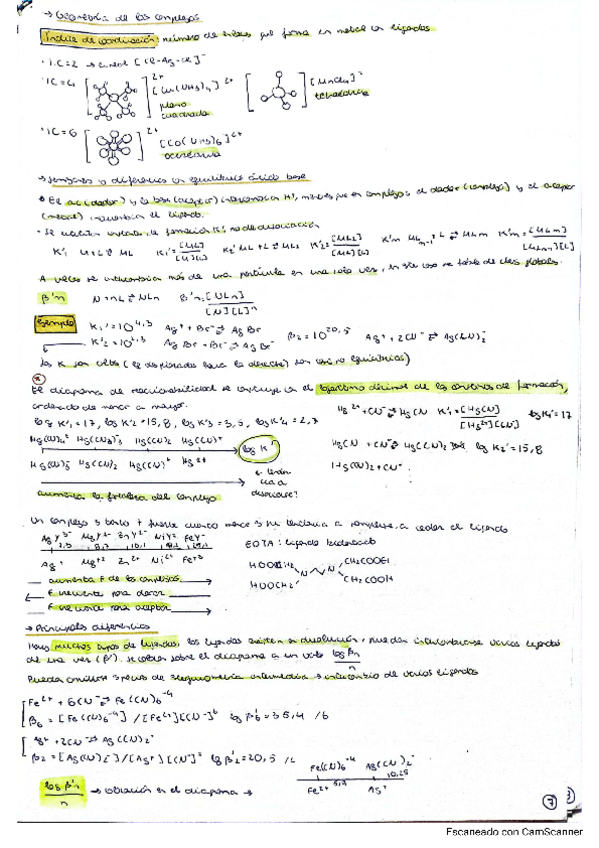 → Geometría de los complejos
Índice de coordinación: número de enlaces que forma un metal con ligandos
· IC=2 → lineal [Cl-Ag-Cl]⁻
· IC=4 [ ]²⁺ [Cu(NH₃)₄]²⁺ plano cuadrada [ ] [MnCl₄]⁻ tetraédrica
· IC=6 [ ]²⁺ [Co(NH₃)₆]²⁺ octaédrica
→ Semejanzas y diferencias con equilibrio ácido base
· El ac (dador) y la base (aceptor) intercambian H⁺, mientras que en complejos el dador (complejo) y el aceptor
(metal) intercambian el ligando.
· Se utilizan constantes de formación K', no de disociación
K'₁ M+L ⇄ ML K'₁=[ML]/[M][L] K'₂ ML+L ⇄ ML₂ K'₂=[ML₂]/[ML][L] K'm MLm-1+L ⇄ MLm K'm=[MLm]/[MLm-1][L]
A veces se intercambia más de una partícula en una sola vez, en este caso se habla de ctes globales.
β'n M+nL ⇄ MLn β'n=[MLn]/[M][L]ⁿ
Ejemplo K₁'=10⁴·³ Ag⁺+Br⁻ ⇄ AgBr
β₂=10²⁰·⁵ Ag⁺+2CN⁻ ⇄ Ag(CN)₂⁻
El diagrama de reaccionabilidad se construye con el logaritmo decimal de las constantes de formación,
ordenado de menor a mayor.
log K'₁=17, log K'₂=15,8, log K'₃=3,5, log K'₄=2,7
Hg²⁺+CN⁻ ⇄ HgCN K'₁=[HgCN]/[Hg²⁺][CN⁻] log K'₁=17
Hg(CN)₄²⁻ Hg(CN)₃⁻ Hg(CN)₂ Hg(CN)⁺ log K'
HgCN + CN⁻ ⇄ Hg(CN)₂ log K₂'=15,8
Hg(CN)₃⁻ Hg(CN)₂ Hg(CN)⁺ Hg²⁺
Hg(CN)₂+CN⁻
aumenta la fortaleza del complejo
Un complejo es básico + fuerte cuanto menor es su tendencia a romperse, a ceder el ligando
AgY³⁻ MgY²⁻ ZnY²⁻ NiY²⁻ FeY⁻
EDTA: ligando
Ag⁺ Mg⁺² Zn²⁺ Ni²⁺ Fe⁺³
HOOCH₂C CH₂COOH
N N
HOOCH₂C CH₂COOH
aumenta F de los complejos
F creciente para donar
F creciente para aceptar
→ Principales diferencias
Hay muchos tipos de ligandos, los ligandos existen en disolución, pueden intercambiarse varios ligandos
de una vez (β'). Se colocan sobre el diagrama a un valor log βn/n
Pueden omitirse especies de estequiometría intermedia → intercambio de varios ligandos
Fe²⁺ + 6CN⁻ ⇄ Fe(CN)₆⁻⁴
β₆ = [Fe(CN)₆⁻⁴] / [Fe²⁺][CN⁻]⁶ log β'₆=35,4 /6
Ag⁺+2CN⁻ ⇄ Ag(CN)₂⁻
β₂=[Ag(CN)₂⁻]/[Ag⁺][CN⁻]² log β'₂=20,5 /2
Fe(CN)₆⁻⁴ Ag(CN)₂⁻
5,9 10.25
Fe²⁺ Ag⁺
log β'n/n → ubicación en el diagrama →
7
Escaneado con CamScanner